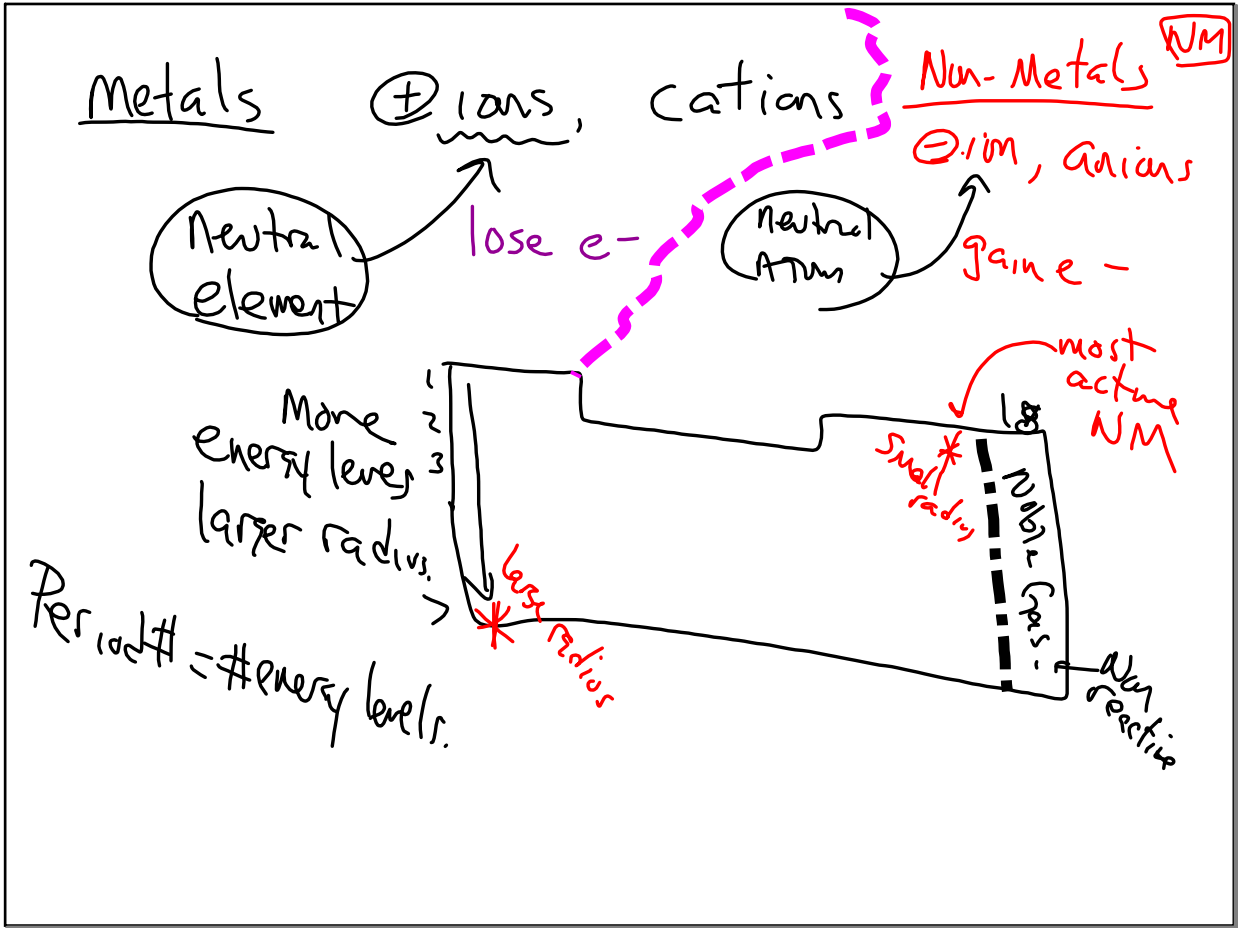 Metals ⊕ ions, cations
Neutral
element
lose e-
Non-Metals
NM
⊖ ion, anions
Neutral
Atom
gain e -
most
active
NM
1
2
3
More
energy levels
larger radius.
Period # = # energy levels.
large
radius
small
radius
18
Noble Gas.
Non
reactive